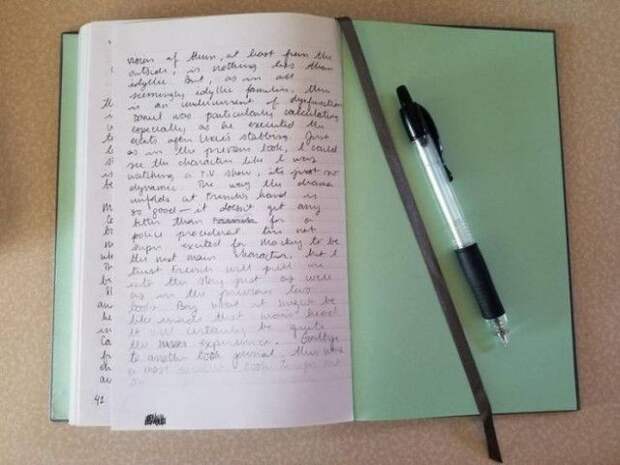 vision of them, at least from the
outside, is nothing less than
idyllic. But, as in all
seemingly idyllic families, there
is an undercurrent of dysfunction
was particularly calculating
especially as he executed the
events after stabbing. Just
as in the previous book, I could
see the characters like I was
watching a TV show, it's just so
dynamic. The way the drama
unfolds at French's hand is
so good — it doesn't get any
better than for a
police procedural. I'm not
super excited for to be
the next main character, but I
trust French will pull me
into the story just as well
as in the previous two
books. Boy, what it might be
like inside that man's head
it will certainly be quite
the experience. Goodbye
to another book journal, this was
a most book
42